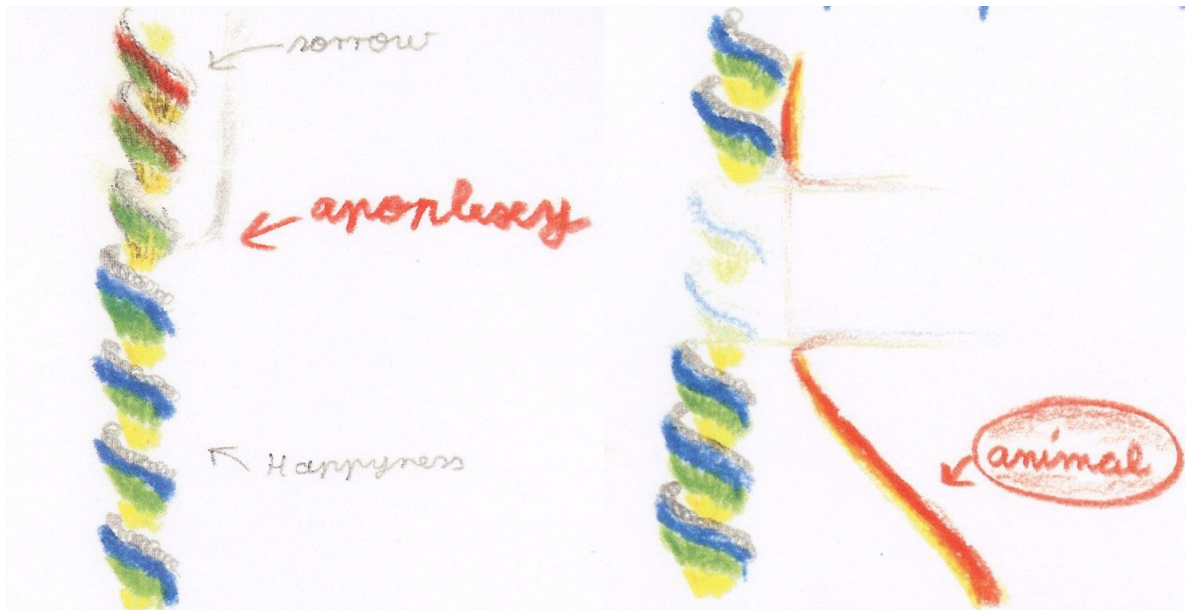 sorrow
apoplexy
Happyness
animal